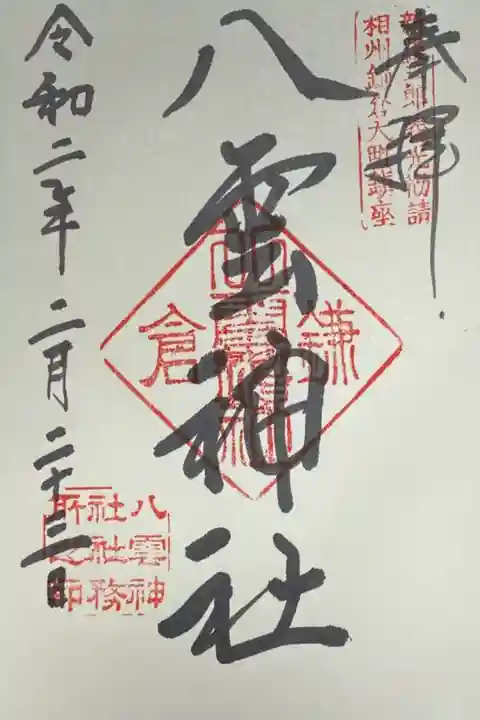 奉拝
相州鎌倉大町鎮座
八雲神社
鎌倉
令和二年二月二十三日
八雲神
社社務
所之印